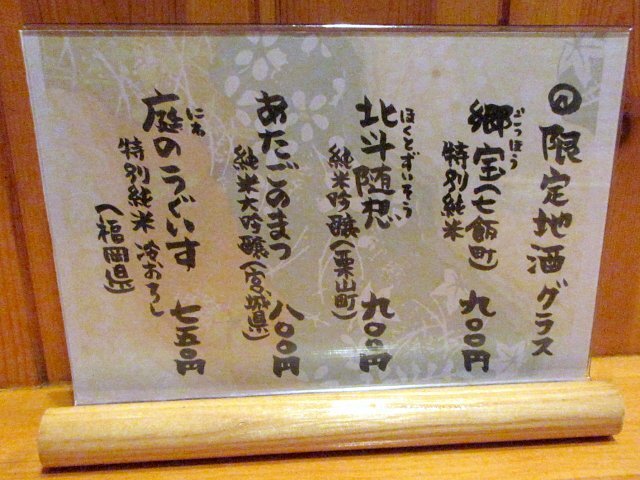 ㊐限定地酒グラス
ごっほう
郷宝(七飯町)
特別純米 九〇〇円
ほくとずいそう
北斗随想
純米吟醸(栗山町) 九〇〇円
あたごのまつ
純米大吟醸(宮城県) 八〇〇円
にわ
庭のうぐいす
特別純米 冷おろし
(福岡県) 七五〇円